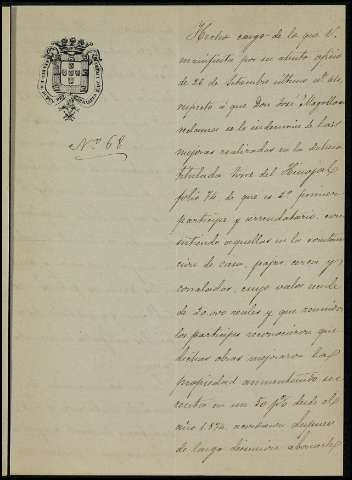 Nº 68
Hecho cargo de lo que V.
manifiesta por su atento oficio
de 26 de Setiembre último nº
respecto á que Don José Magallon
reclama se le indemnice de las
mejoras realizadas en la dehesa
titulada Torre del Hinojal
folio 74 de que es 2º primer
partícipe y arrendatario, con
sistiendo aquellas en la construc
ción de casa, pajar, cerca y
corraladas, cuyo valor asciende
de 20.000 reales y que reunidos
los partícipes reconocieron que
dichas obras mejoraron la
propiedad aumentando su
renta en un 50 p% desde el
año 1.874, acordaron después
de larga discusión abonarle